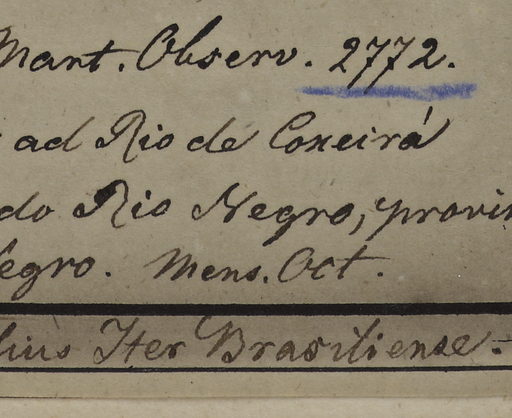 Mart. Observ. 2772.
ad Rio de Coxeirá
do Rio Negro, provin
Negro. Mens. Oct.
Iter Brasiliense.